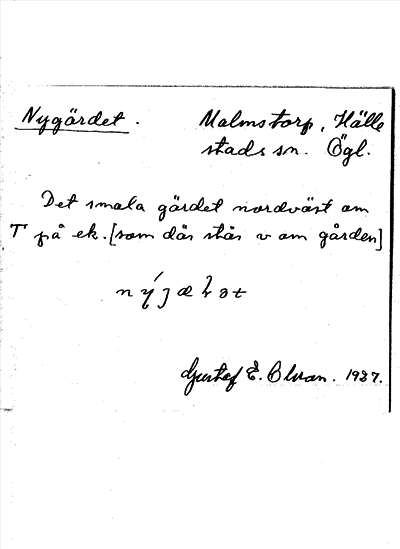 Nygärdet. Malmstorp, Hälle
stads sn. Ögl.
Det smala gärdet nordväst om
T på ek. [som där står v om gården]
Gustaf E. Olson. 1937.